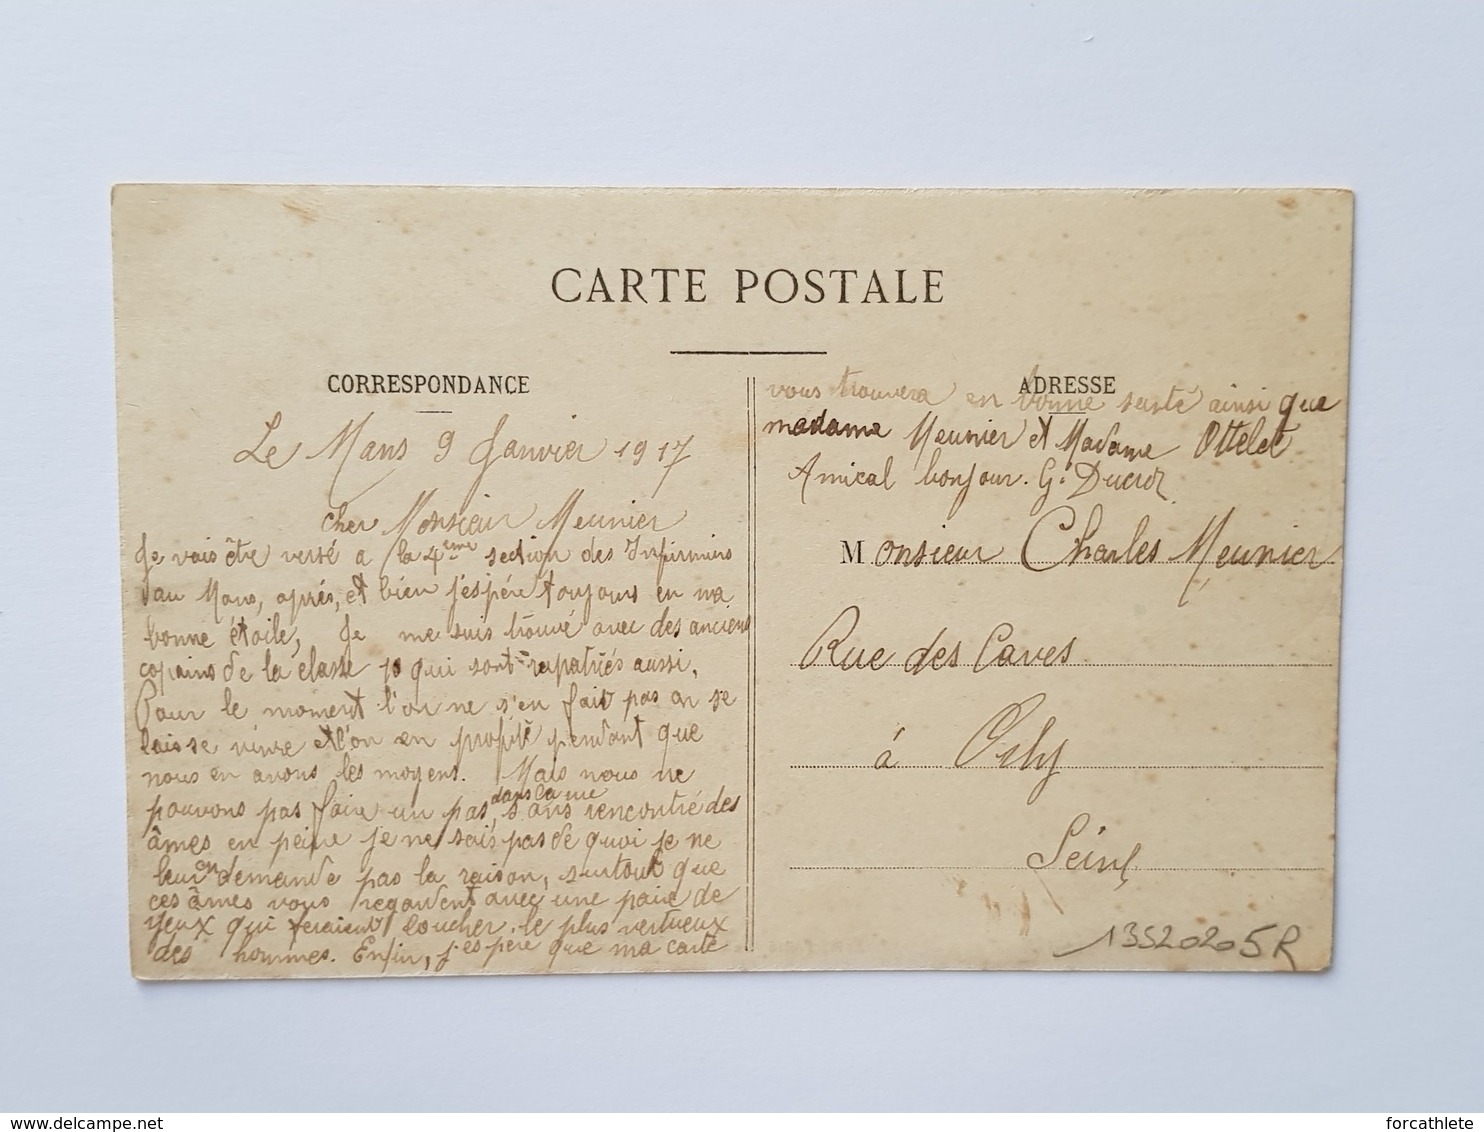 CARTE POSTALE
CORRESPONDANCE
Le Mans 9 Janvier 1917
cher Monsieur Meunier
Je vais être versé a la 4ème section des Infirmiers
au Mans, après, et bien j'espère toujours en ma
bonne étoile, Je me suis trouvé avec des anciens
copains de la classe 10 qui sont rapatriés aussi.
Pour le moment l'on ne s'en fait pas on se
laisse vivre et l'on en profite pendant que
nous en avons les moyens. Mais nous ne
pouvons pas faire un pas, dans la rue sans rencontré des
âmes en peine je ne sais pas de quoi je ne
leur en demande pas la raison, surtout que
ces âmes vous regardent avec une paire de
yeux qui feraient loucher le plus vertueux
des hommes. Enfin, j'espère que ma carte
ADRESSE
vous trouvera en bonne santé ainsi que
madame Meunier et Madame Ottelet
Amical bonjour. G.
Monsieur Charles Meunier
Rue des Caves
à Orly
Seine
13520205R
delcampe.net
forcathlete